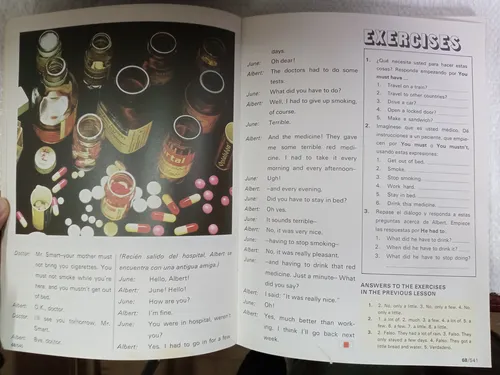 Doctor: Mr. Smart–your mother must
not bring you cigarettes. You
must not smoke while you're
here, and you mustn't get out
of bed.
Albert: O.K., doctor.
Doctor: I'll see you tomorrow, Mr.
Smart.
Albert: Bye, doctor.
(Recién salido del hospital, Albert se
encuentra con una antigua amiga.)
June: Hello, Albert!
Albert: June! Hello!
June: How are you?
Albert: I'm fine.
June: You were in hospital, weren't
you?
Albert: Yes, I had to go in for a few
days.
June: Oh dear!
Albert: The doctors had to do some
tests
June: What did you have to do?
Albert: Well, I had to give up smoking,
of course.
June: Terrible.
Albert: And the medicine! They gave
me some terrible red medi-
cine. I had to take it every
morning and every afternoon–
June: Ugh!
Albert: –and every evening.
June: Did you have to stay in bed?
Albert: Oh yes.
June: It sounds terrible–
Albert: No, it was very nice.
June: –having to stop smoking–
Albert: No, it was really pleasant.
June: –and having to drink that red
medicine. Just a minute– What
did you say?
Albert: I said: "It was really nice."
June: Oh!
Albert: Yes, much better than work-
ing. I think I'll go back next
week.
EXERCISES
1. ¿Qué necesita usted para hacer estas
cosas? Responda empezando por You
must have ...
1. Travel on a train?
2. Travel to other countries?
3. Drive a car?
4. Open a locked door?
5. Make a sandwich?
2. Imagínese que es usted médico. Dé
instrucciones a un paciente, que empie-
cen por You must o You mustn't,
usando estas expresiones:
1. Get out of bed.
2. Smoke.
3. Stop smoking.
4. Work hard.
5. Stay in bed.
6. Drink this medicine.
3. Repase el diálogo y responda a estas
preguntas acerca de Albert. Empiece
las respuestas por He had to:
1. What did he have to drink?
2. When did he have to drink it?
3. What did he have to stop doing?
ANSWERS TO THE EXERCISES
IN THE PREVIOUS LESSON
68/541